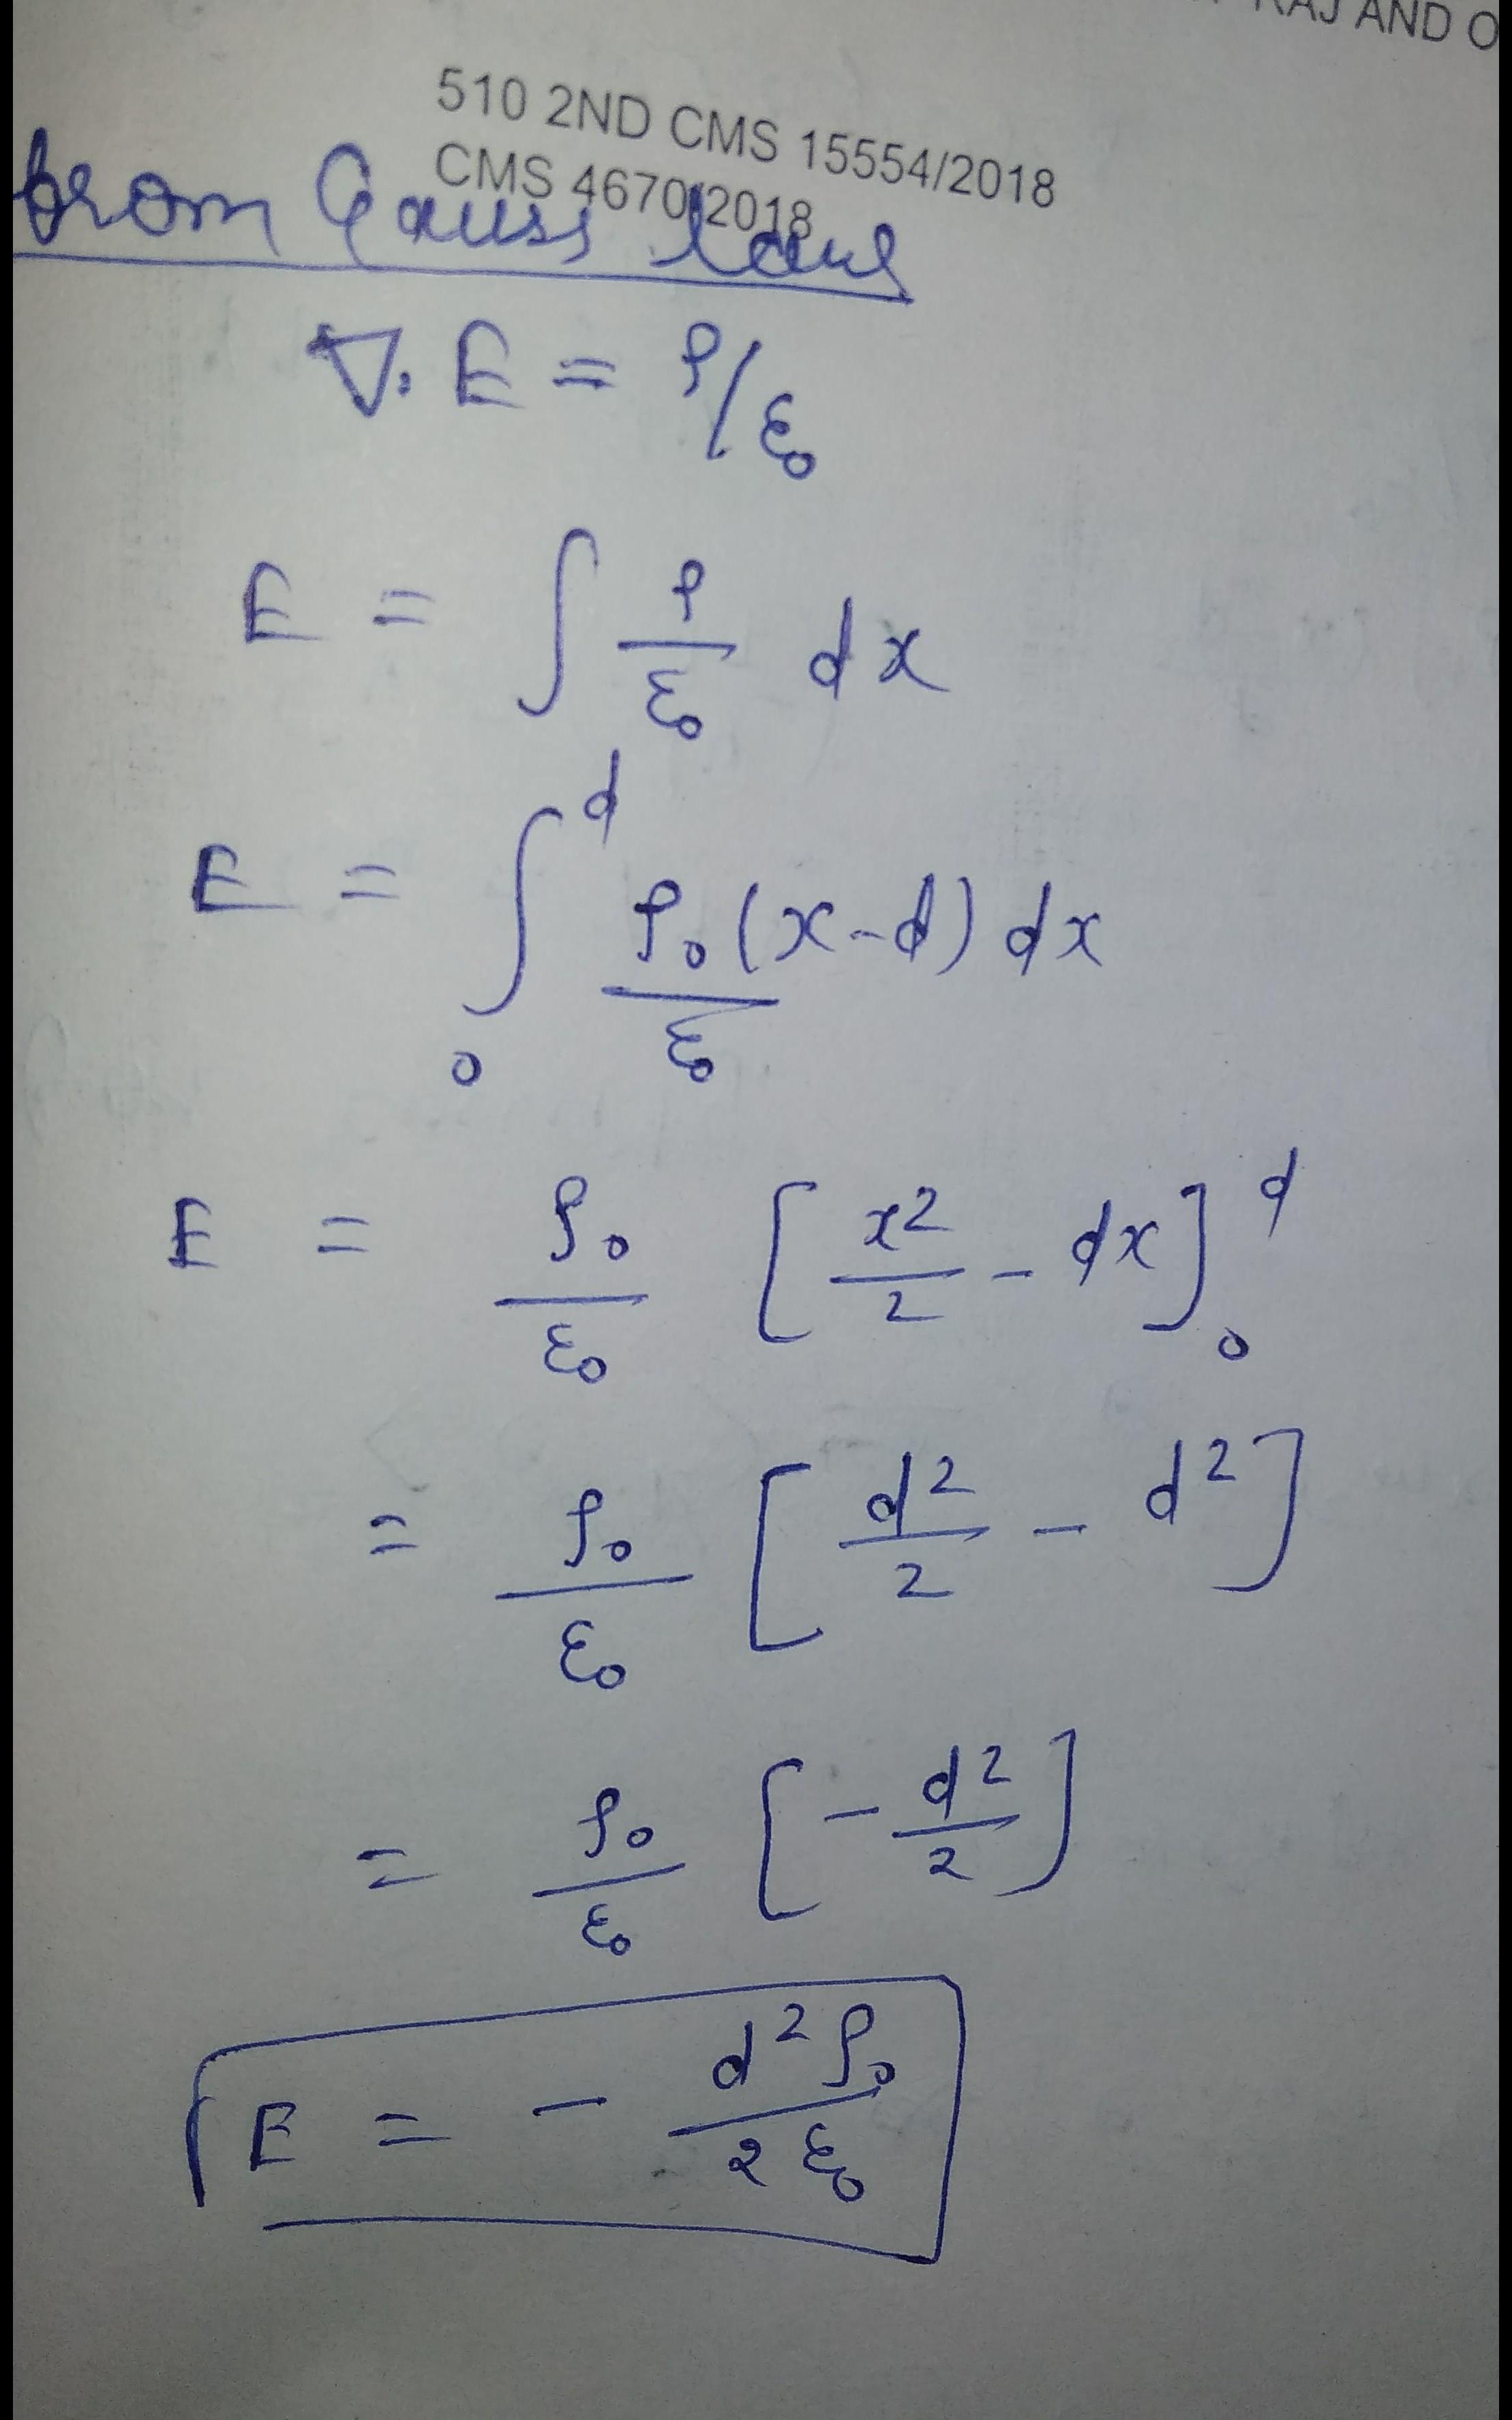 RAJ AND O
510 2ND CMS 15554/2018
CMS 4670/2018
from Gauss law
∇. E = ρ/ε₀
E = ∫ ρ/ε₀ dx
E = ∫₀ᵈ ρ₀(x-d)/ε₀ dx
E = ρ₀/ε₀ [x²/2 - dx]₀ᵈ
= ρ₀/ε₀ [d²/2 - d²]
= ρ₀/ε₀ [-d²/2]
E = - d²ρ₀/2ε₀